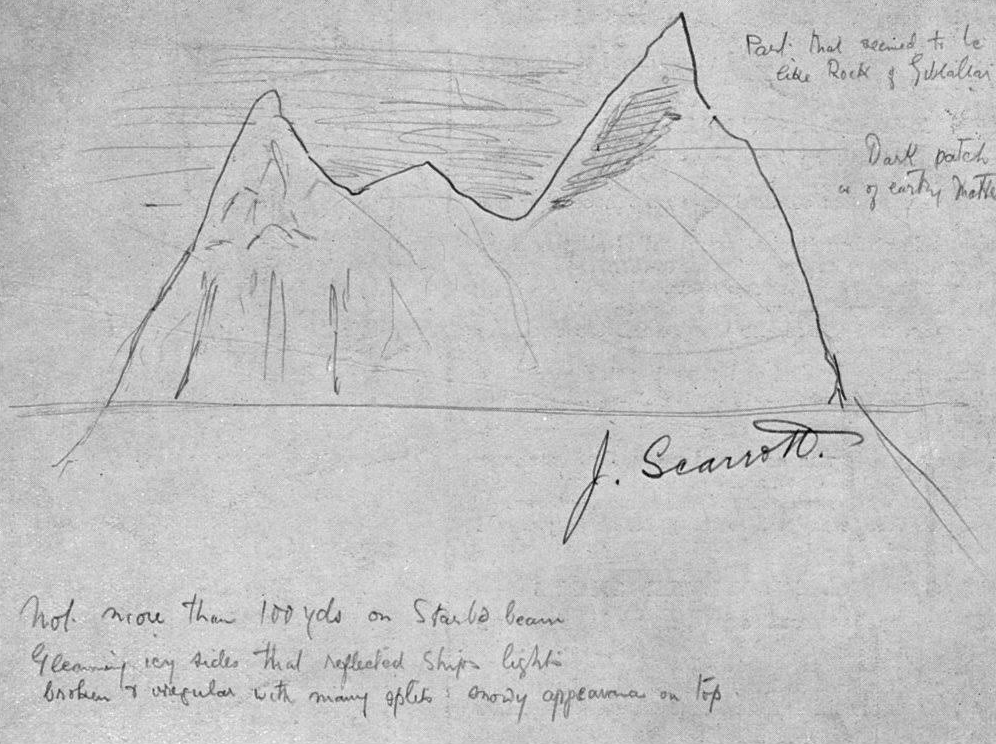 Part that seemed to be
like Rock of Gibraltar
Dark patch
as of earthy Matte
J. Scarrott.
Not more than 100 yds on Starbd beam
Gleaming icy sides that reflected Ships lights
broken & irregular with many splits: snowy appearance on top.